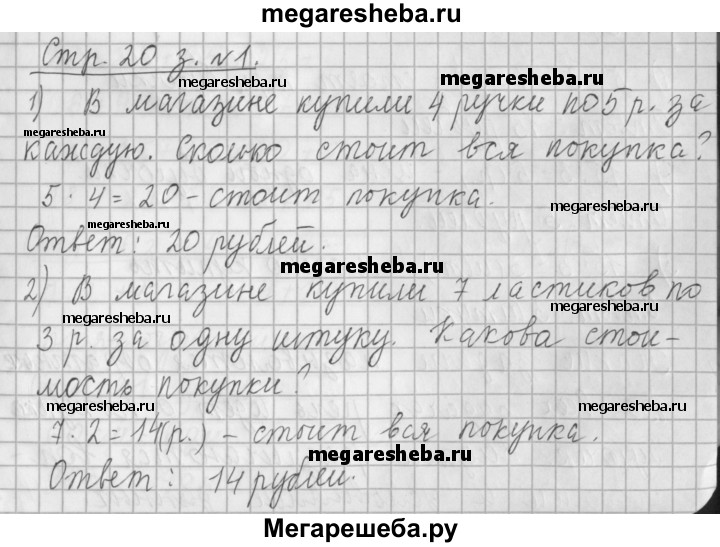 megaresheba.ru
Стр. 20 з. №1.
megaresheba.ru megaresheba.ru
1) В магазине купили 4 ручки по 5 р. за
megaresheba.ru
каждую. Сколько стоит вся покупка?
5 · 4 = 20 - стоит покупка.
megaresheba.ru megaresheba.ru
Ответ: 20 рублей.
megaresheba.ru
2) В магазине купили 7 ластиков по
megaresheba.ru megaresheba.ru
3 р. за одну штуку. Какова стои-
мость покупки?
megaresheba.ru megaresheba.ru
7 · 2 = 14(р.) - стоит вся покупка.
megaresheba.ru
Ответ: 14 рублей.
Мегарешеба.ру